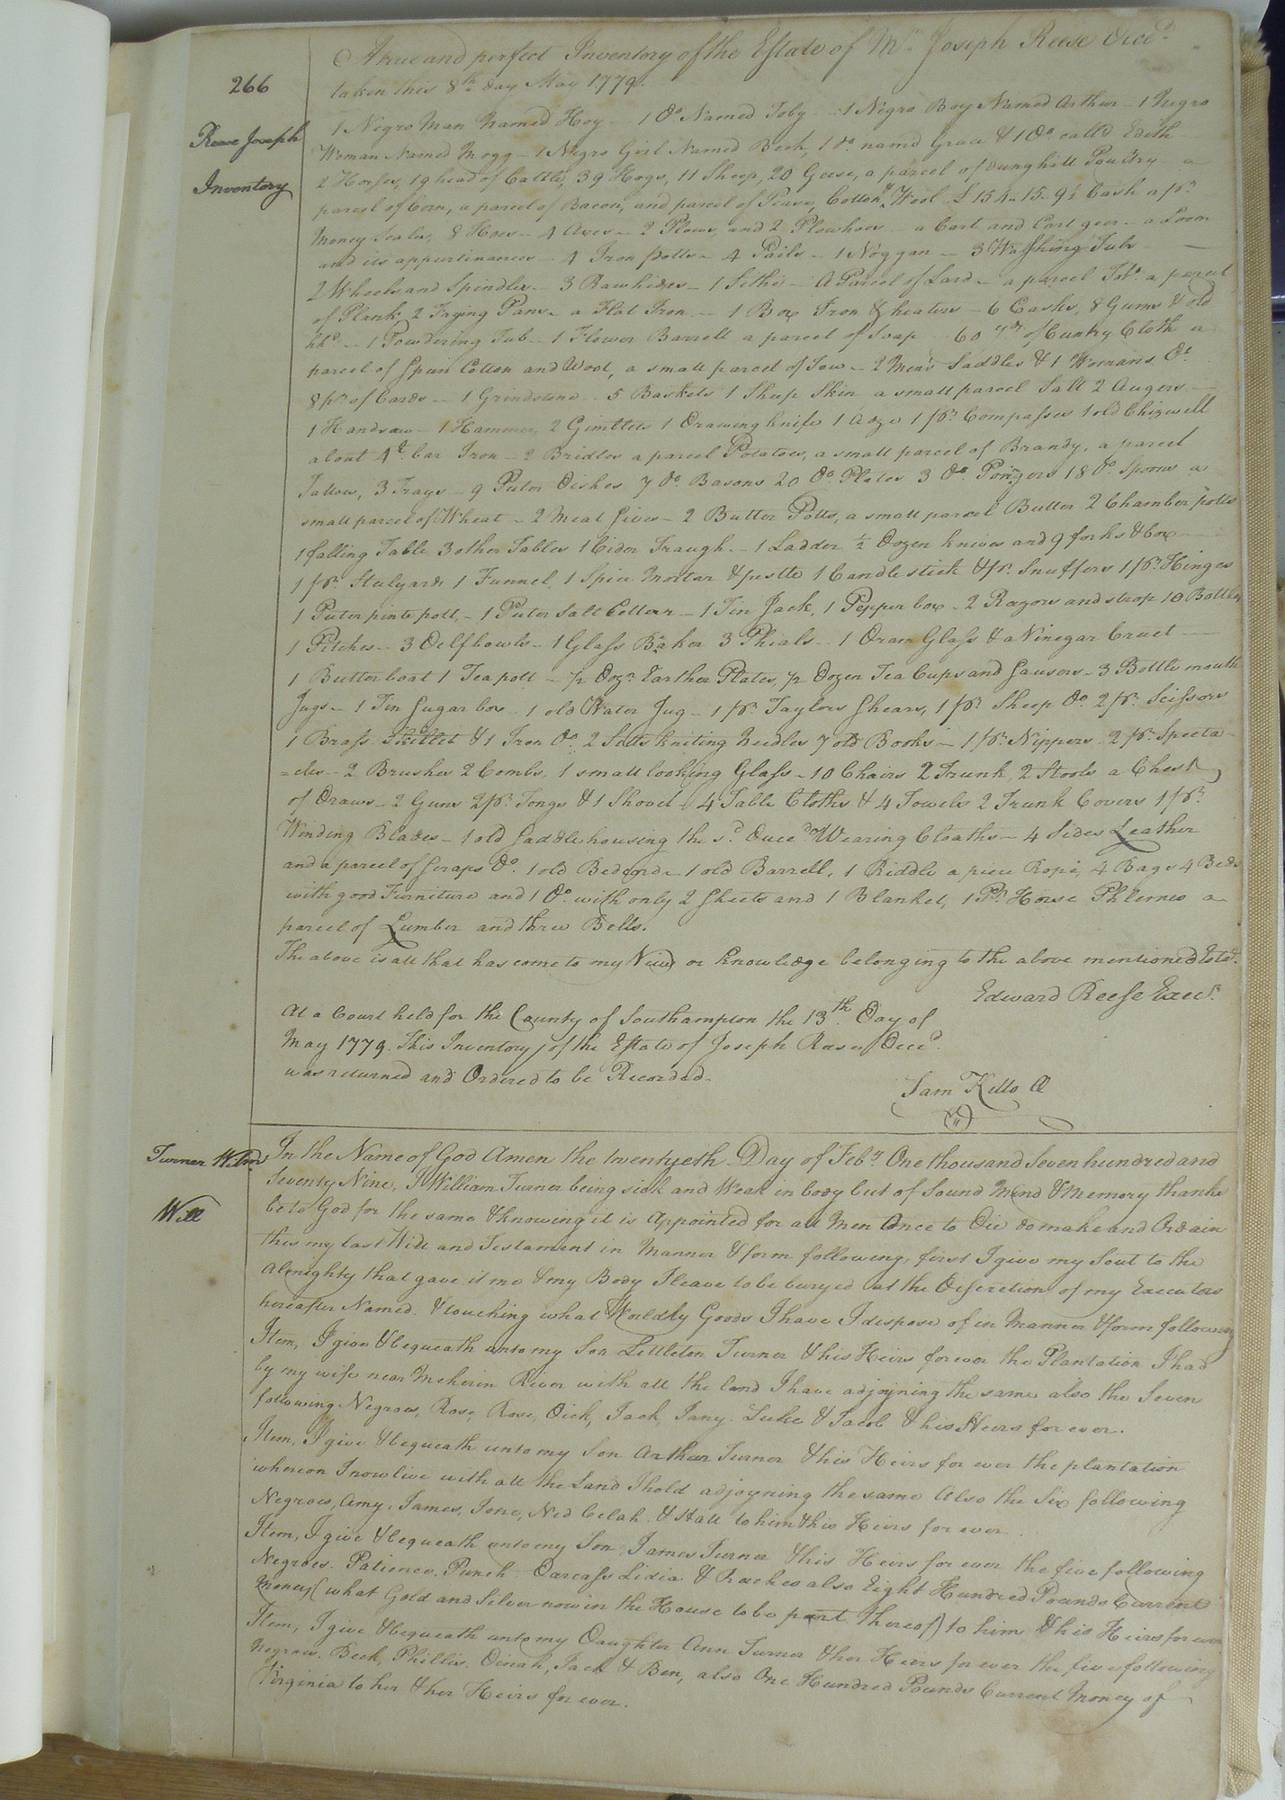 266
Reese Joseph
Inventory
A true and perfect Inventory of the Estate of Mr. Joseph Reese Decd.
taken this 8th day May 1779.
1 Negro Man Named Hoy - 1 Do Named Toby - 1 Negro Boy Named Arthur - 1 Negro
Woman Named Mogg - 1 Negro Girl Named Beck, 1 do. namd Grace & 1 Do. calld Edith
2 Horses, 19 head of Cattle, 39 Hogs, 11 Sheep, 20 Geese, a parcel of dunghill Poultry - a
parcel of Corn, a parcel of Bacon, and parcel of Pease, Cotton & Wool £154-15-9½ Cash a pr.
Money Scales, 8 Hoes - 4 Axes - 2 Plows, and 2 Plowhoes - a Cart and Cart geer - a Loom
and its appurtinances - 4 Iron potts - 4 Pails - 1 Noggan - 3 Washing Tubs -
2 Wheels and Spindles - 3 Rawhides - 1 Sithe - A Parcel of Lard - a parcel Tobo. a parcel
of Plank 2 Frying Pans - a Flat Iron - 1 Box Iron & heaters - 6 Casks, 8 Gums & old
hhd - 1 Powdering Tub - 1 Flower Barrell a parcel of Soap 60 yds of Cuntry Cloth a
parcel of Spun Cotton and Wool, a small parcel of Tow - 2 Mens Saddles & 1 Womans Do.
8 pr. of Cards - 1 Grindstone - 5 Baskets 1 Sheep Skin a small parcel Salt 2 Augers -
1 Handsaw - 1 Hammer, 2 Gimblets 1 Drawing knife 1 Adze 1 pr. Compasses 1 old Chizwell
about 4 lt. bar Iron - 2 Bridles a parcel Potatoes, a small parcel of Brandy, a parcel
Tallow, 3 Trays - 9 Puter Dishes 7 do. Basons 20 Do. Plates 3 Do. Poringers 18 Do. Spoons a
small parcel of Wheat - 2 Meal Sives - 2 Butter Potts, a small parcel Butter 2 Chamber potts
1 falling Table 3 other Tables 1 Cider Traugh - 1 Ladder ½ Dozen knives and 9 forks & box
1 pr. Stulyards 1 Funnel, 1 Spice Mortar & pestle 1 Candlestick & pr. Snuffers 1 pr. Hinges
1 Puter pinte pott, - 1 Puter Salt Cellar - 1 Tin Jack, 1 Pepper box - 2 Razors and strop 10 Bottles
1 Pitcher - 3 Delf bowls - 1 Glass Baker 3 Phials - 1 Dram Glass & a Vinegar Cruet -
1 Butter boat 1 Teapott - ½ Dozn. Earthen Plates, ½ Dozen Tea Cups and Sausors - 3 Bottle mouth
Jugs - 1 Tin Sugar box - 1 old Water Jug - 1 pr. Taylors Shears, 1 pr. Sheep Do. 2 pr. Scissors
1 Brass Skillet & 1 Iron Do. 2 Setts kniting Needles 7 old Books - 1 pr. Nippers - 2 pr. Specta-
=cles - 2 Brushes 2 Combs, 1 small looking Glass - 10 Chairs 2 Trunk, 2 Stools a Chest
of Draws - 2 Guns 2 pr. Tongs & 1 Shovel - 4 Table Cloths & 4 Towels 2 Trunk Covers 1 pr.
Winding Blades - 1 old Saddle housing the sd. Decd. Wearing Cloaths - 4 Sides Leather
and a parcel of Scraps Do. 1 old Bedcord - 1 old Barrell, 1 Riddle a piece Rope, 4 Bags 4 Beds
with good Furniture and 1 Do. with only 2 Sheets and 1 Blanket, 1 Pr. Horse Phlemes a
parcel of Lumber and three Bells.
The above is all that has come to my View or knowledge belonging to the above mentioned Estate.
Edward Reese Execr.
At a Court held for the County of Southampton the 13th. Day of
May 1779. This Inventory of the Estate of Joseph Reese Decd.
was returned and Ordered to be Recorded.
Sam Kello
Turner Wilm
Will
In the Name of God Amen the twentyeth Day of Feby. One thousand Seven hundred and
Seventy Nine, I William Turner being sick and Weak in body but of Sound Mind & Memory thanks
be to God for the same & knowing it is Appointed for all Men Once to Die do make and Ordain
this my last Will and Testament in Manner & form following, first I give my Soul to the
Almighty that gave it me & my Body I leave to be buryed at the Discretion of my Executors
hereafter Named. & touching what Worldly Goods I have I dispose of in Manner & form following
Item, I give & bequeath unto my Son Littleton Turner & his Heirs forever the Plantation I had
by my wife near Meherin River with all the land I have adjoyning the same also the Seven
following Negroes, Rose, Rose, Dick, Jack, Jany. Luke & Jacob & his Heirs for ever.
Item, I give & bequeath unto my Son Arthur Turner & his Heirs for ever the plantation
whereon I now live with all the Land I hold adjoyning the same Also the Six following
Negroes, Amy, James, Jone, Ned Celah & Hall to him & his Heirs for ever.
Item, I give & bequeath unto my Son James Turner & his Heirs for ever the five following
Negroes. Patience, Punch Darcass Lidia & Rachel also Eight Hundred Pounds Current
Money (what Gold and Silver now in the House to be part thereof) to him & his Heirs for ever
Item, I give & bequeath unto my Daughter Ann Turner & her Heirs for ever the five following
Negroes. Beck, Phillis, Dinah, Jack & Ben, also One Hundred Pounds Current Money of
Virginia to her & her Heirs for ever.